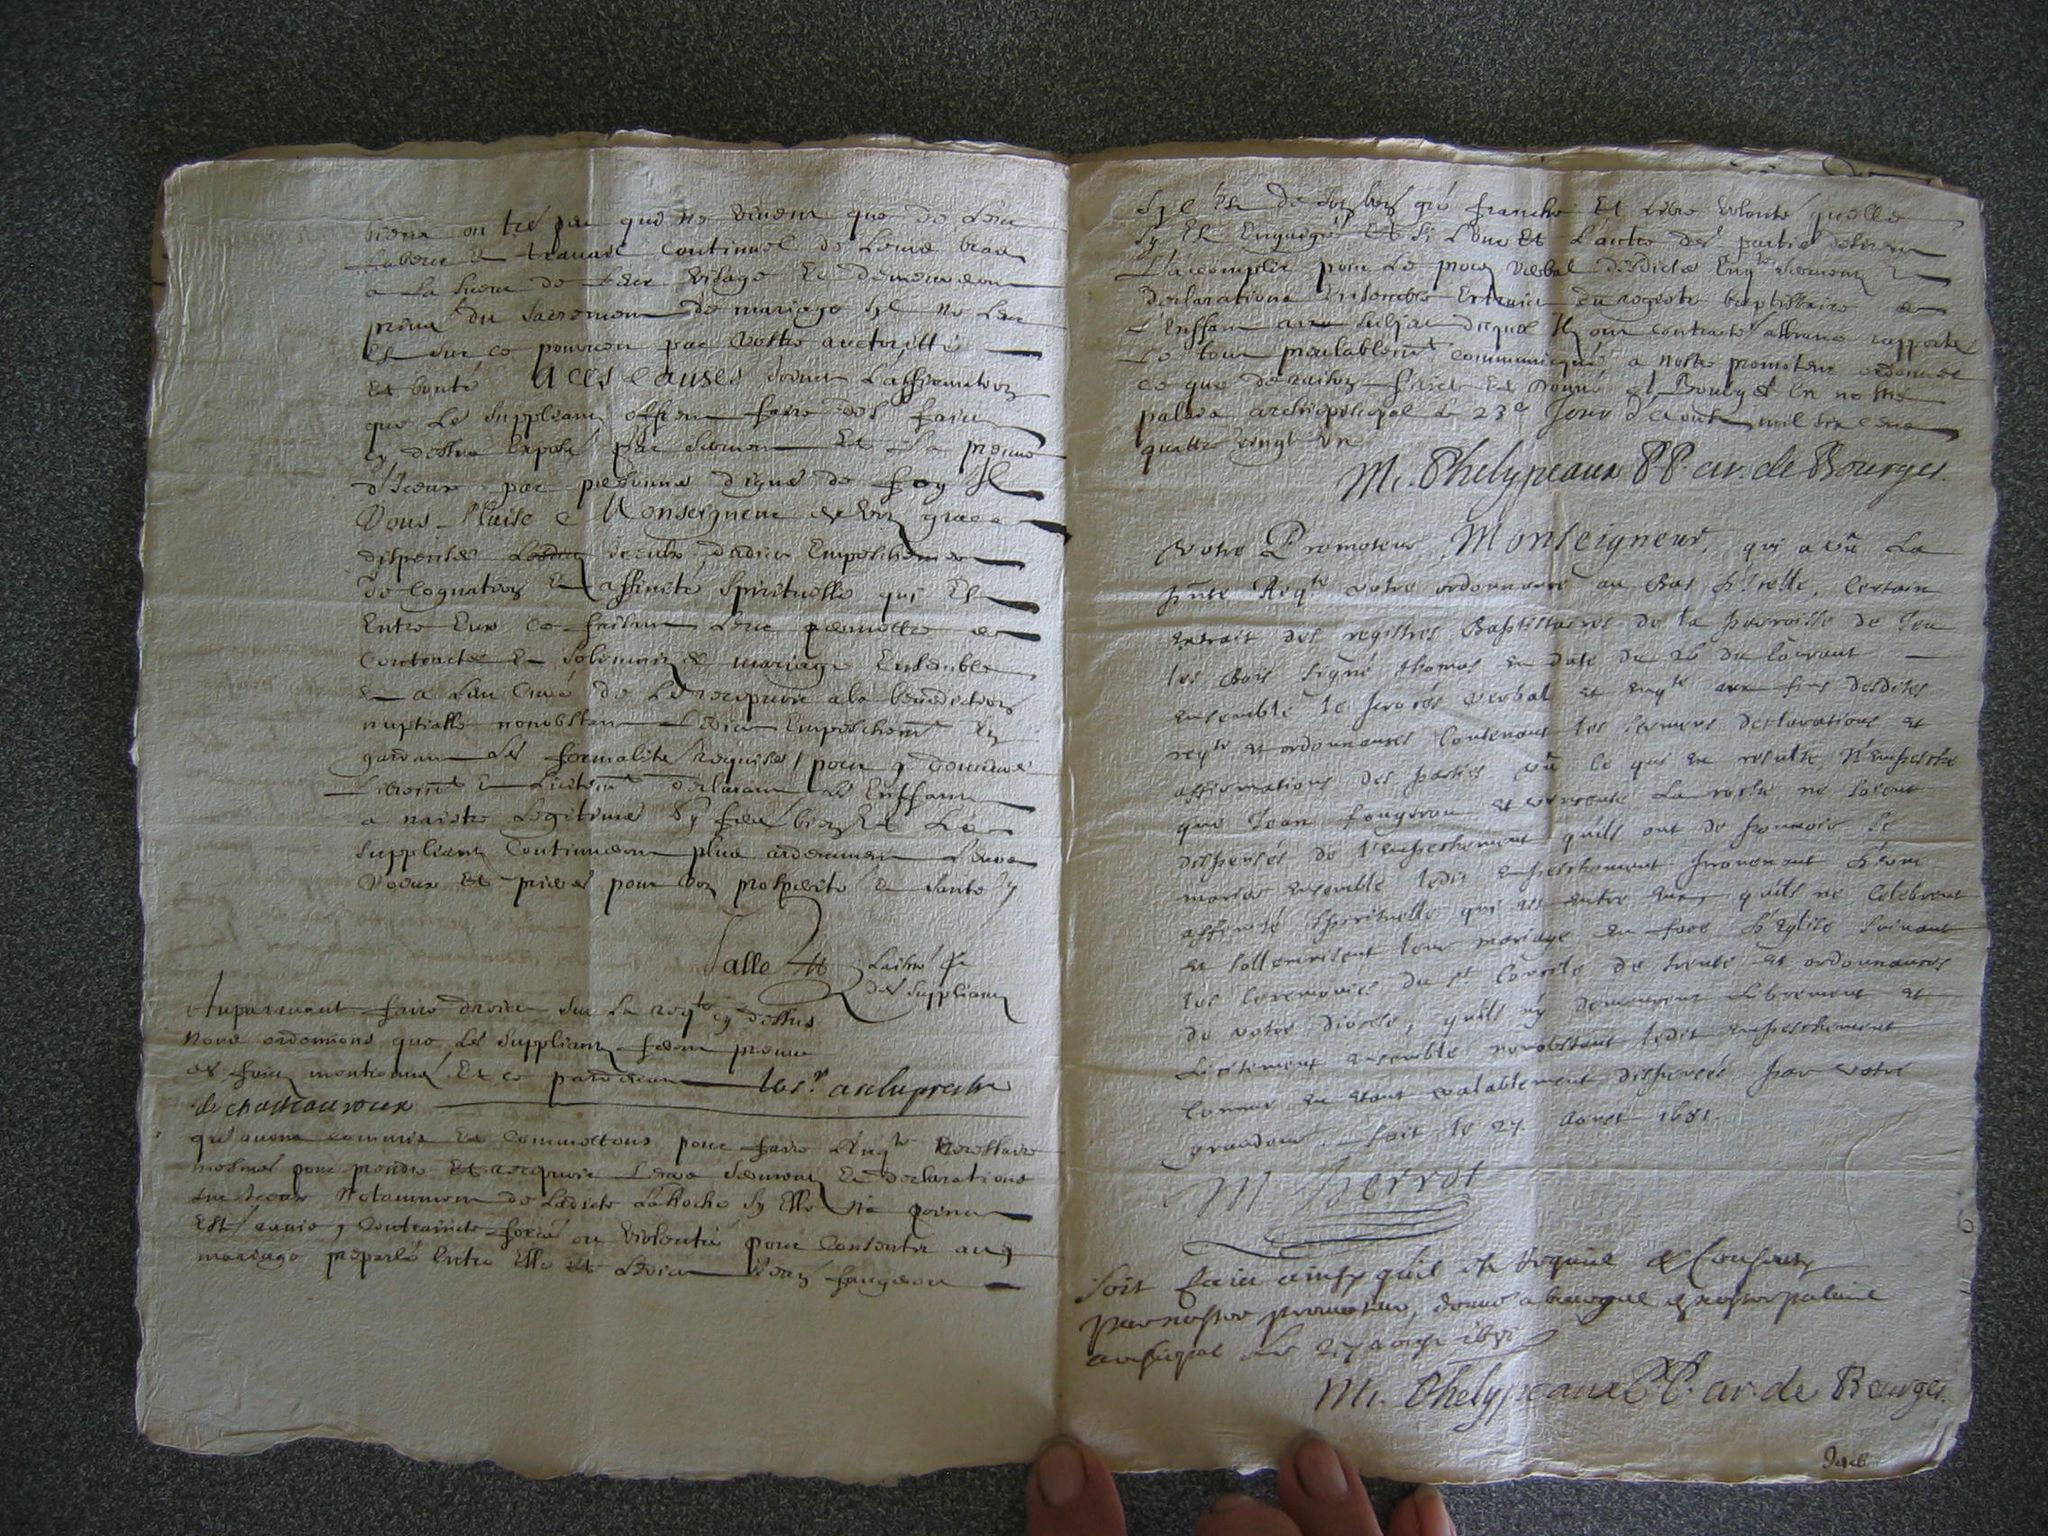 biens ont tres peu qui ne vivent que de leur
labeur et travail continuel de leurs bras
a la sueur de leur visage et demeureront
privez du sacrement de mariage sil ne leur
est sur ce pourveu par vostre auctoritté
et bonté A ces causes soubz laffirmation
que les suppliantz offrent faire des faictz
cy dessus exposés par serment et la preuve
d'iceux par personnes dignes de foy Il
Vous Plaise Monseigneur de voz graces
dispenser iceulx dudict empeschement
de cognation et affinité spirituelle qui est
entre eux ce faisant leur permettre de
contracter et solemnizer mariage ensemble
et a leur curé de les recepvoir a la benediction
nuptialle nonobstant ledict empeschemt en
gardant les formalités requises pour y demeurer
licitemt declarant les enffans
a naistre legitimes Sy ferez bien et les
suppliantz continueront plus ardemment leurs
voeux et prieres pour voz prosperité et santé
Salle
des suppliantz
Auparavant faire droict sur la reqte cy dessus
nous ordonnons que les suppliantz feront preuve
des faictz mentionnés et ce pardevant le Sr archiprestre
de chasteauroux
qu'avons commis et commettons pour faire l'enqte necessaire
mesmes pour prendre et recepvoir leurs serments et declarations
sur iceux notamment de ladicte LaRoche sy elle n'a point
esté ravie contraincte forcée ou violentée pour consentir au
mariage preparlé entre elle et ledict Jean faugeron
sy c'est de son bon gré franche et libre volonté quelle
sy est engagée et si l'une et l'autre des parties desirent
l'accomplir pour le procez verbal desdictes enqte serments et
declarations ensemble extraict du registre baptistaire de
l'enffant au subject duquel ilz ont contracté affinité rapporté
le tout prealablemt communiqué a nostre promoteur ordonner
ce que de raison faict et donné a Bourges en nostre
palais archiepiscopal le 23e jour d'Aoust mil six cens
quattre vingt un
M. Phelypeaux P.P. ar. de Bourges.
Votre Promoteur, Monseigneur, qui a vû La
pñte Reqte votre ordonnance au bas d'icelle, certain
extrait des registres Baptistaires de la parroisse de Jeu
les Bois signé thomas en date du 26 du courant
ensemble le procés verbal et enqte aux fins desdites
reqte et ordonnances contenant les sermens declarations et
affirmations des parties vû ce qui en resulte, N'empesche
que Jean fougeron et La roche ne soient
dispensés de l'empeschement qu'ils ont de pouvoir se
marier ensemble ledit empeschement provenant d'une
affinité spirituelle qui est entre eux, quils ne celebrent
et sollemnisent leur mariage en face d'Eglise suivant
les ceremonies du St Concile de trente et ordonnances
de votre diocese, qu'ils n'y demeurent librement et
licitement ensemble nonobstant ledit empeschement
comme en etant valablement dispensés par votre
grandeur. fait le 27 Aoust 1681.
M Perrot
Soit faict ainsy quil est requis et consenty
par nostre promoteur, donné a bourges en nostre palais
archiepal le 27 aoust 1681
M. Phelypeaux P.P. ar. de Bourges.